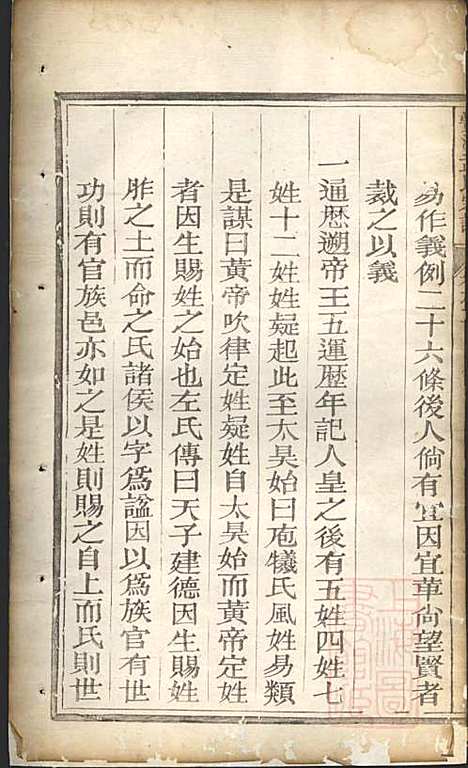 易作義例二十六條後人倘有宜因宜革尙望賢者
裁之以義
一通歷遡帝王五運歷年記人皇之後有五姓四姓七
姓十二姓姓疑起此至太昊始曰庖犧氏風姓易類
是謀曰黃帝吹律定姓疑姓自太昊始而黃帝定姓
者因生賜姓之始也左氏傳曰天子建德因生賜姓
胙之土而命之氏諸侯以字爲諡因以爲族官有世
功則有官族邑亦如之是姓則賜之自上而氏則世